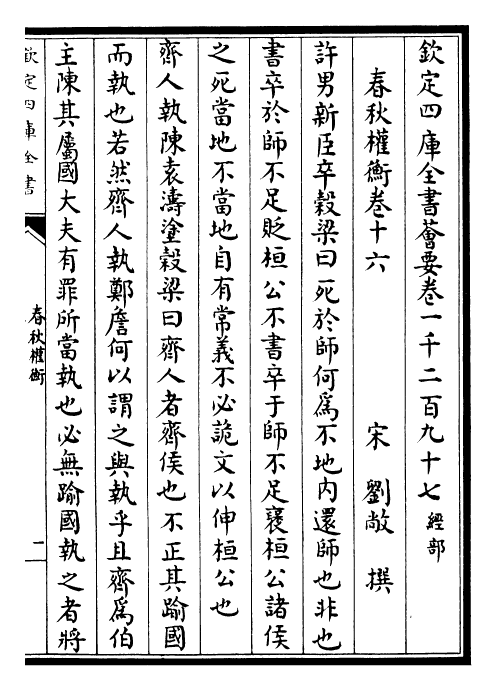 欽定四庫全書薈要卷一千二百九十七經部
春秋權衡卷十六
宋 劉敞 撰
許男新臣卒穀梁曰死於師何爲不地内還師也非也
書卒於師不足貶桓公不書卒于師不足襃桓公諸侯
之死當地不當地自有常義不必詭文以伸桓公也
齊人執陳袁濤塗穀梁曰齊人者齊侯也不正其踰國
而執也若然齊人執鄭詹何以謂之與執乎且齊爲伯
主陳其屬國大夫有罪所當執也必無踰國執之者將
欽定四庫全書
春秋權衡
二